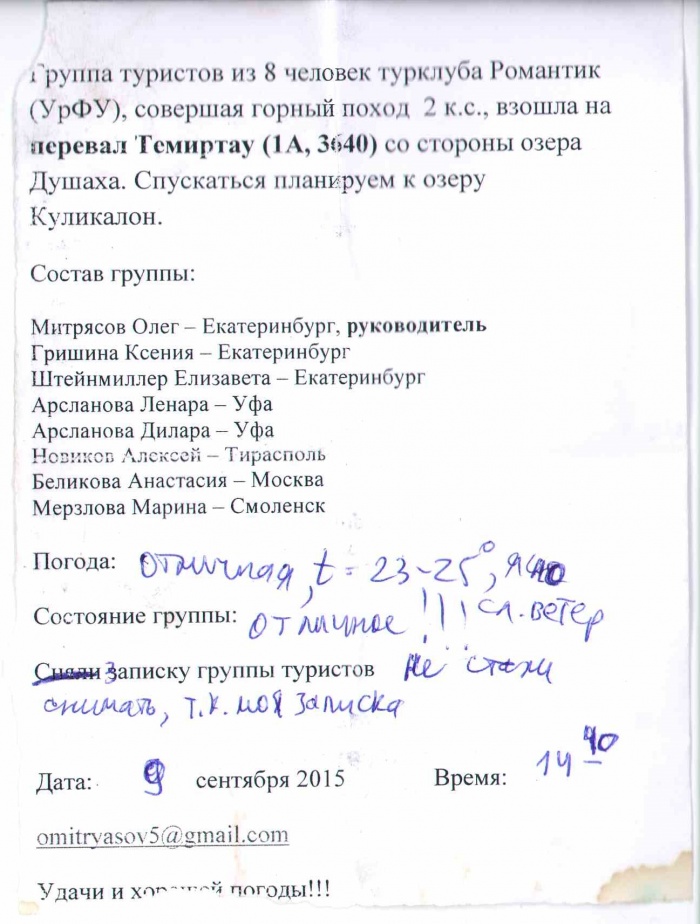 Группа туристов из 8 человек турклуба Романтик
(УрФУ), совершая горный поход 2 к.с., взошла на
перевал Темиртау (1А, 3640) со стороны озера
Душаха. Спускаться планируем к озеру
Куликалон.
Состав группы:
Митрясов Олег – Екатеринбург, руководитель
Гришина Ксения – Екатеринбург
Штейнмиллер Елизавета – Екатеринбург
Арсланова Ленара – Уфа
Арсланова Дилара – Уфа
Новиков Алексей – Тирасполь
Беликова Анастасия – Москва
Мерзлова Марина – Смоленск
Погода: отличная, t = 23-25°, ясно
сл. ветер
Состояние группы: отличное!!!
Сняли Записку группы туристов не стали
снимать, т.к. моя записка
Дата: 9 сентября 2015 Время: 14 40
omitryasov5@gmail.com
Удачи и хорошей погоды!!!